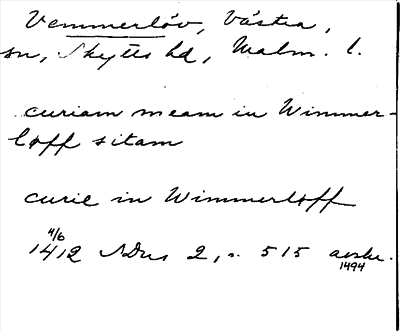 Vemmerlöv, Västra,
sn, Skytts hd, Malm. l.
curiam meam in Wimmer-
loff sitam
curie in Wimmerloff
4/6
1412 SDns 2, s. 515 avskr.
1494